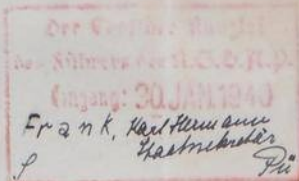 Der Chef der Kanzlei
des Führers der N.S.D.A.P.
Eingang: 30. JAN. 1940
Frank, Karl Hermann
Staatssekretär